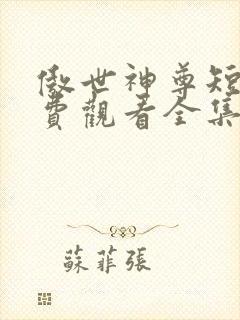 傲世神尊短
費觀看全集
蘇菲張